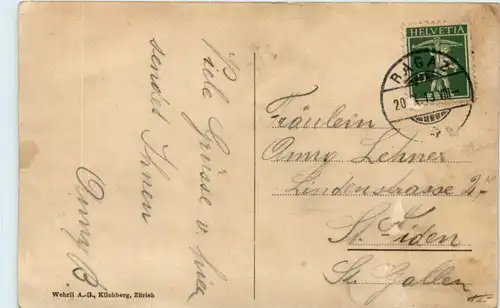 Viele Grüsse v. hier
sendet Ihnen
Anny B.
HELVETIA
RAGAZ
20.
Fräulein
Anny Lehner
Lindenstrasse
St. Fiden
St. Gallen
Wehrli A.-G., Kilchberg, Zürich